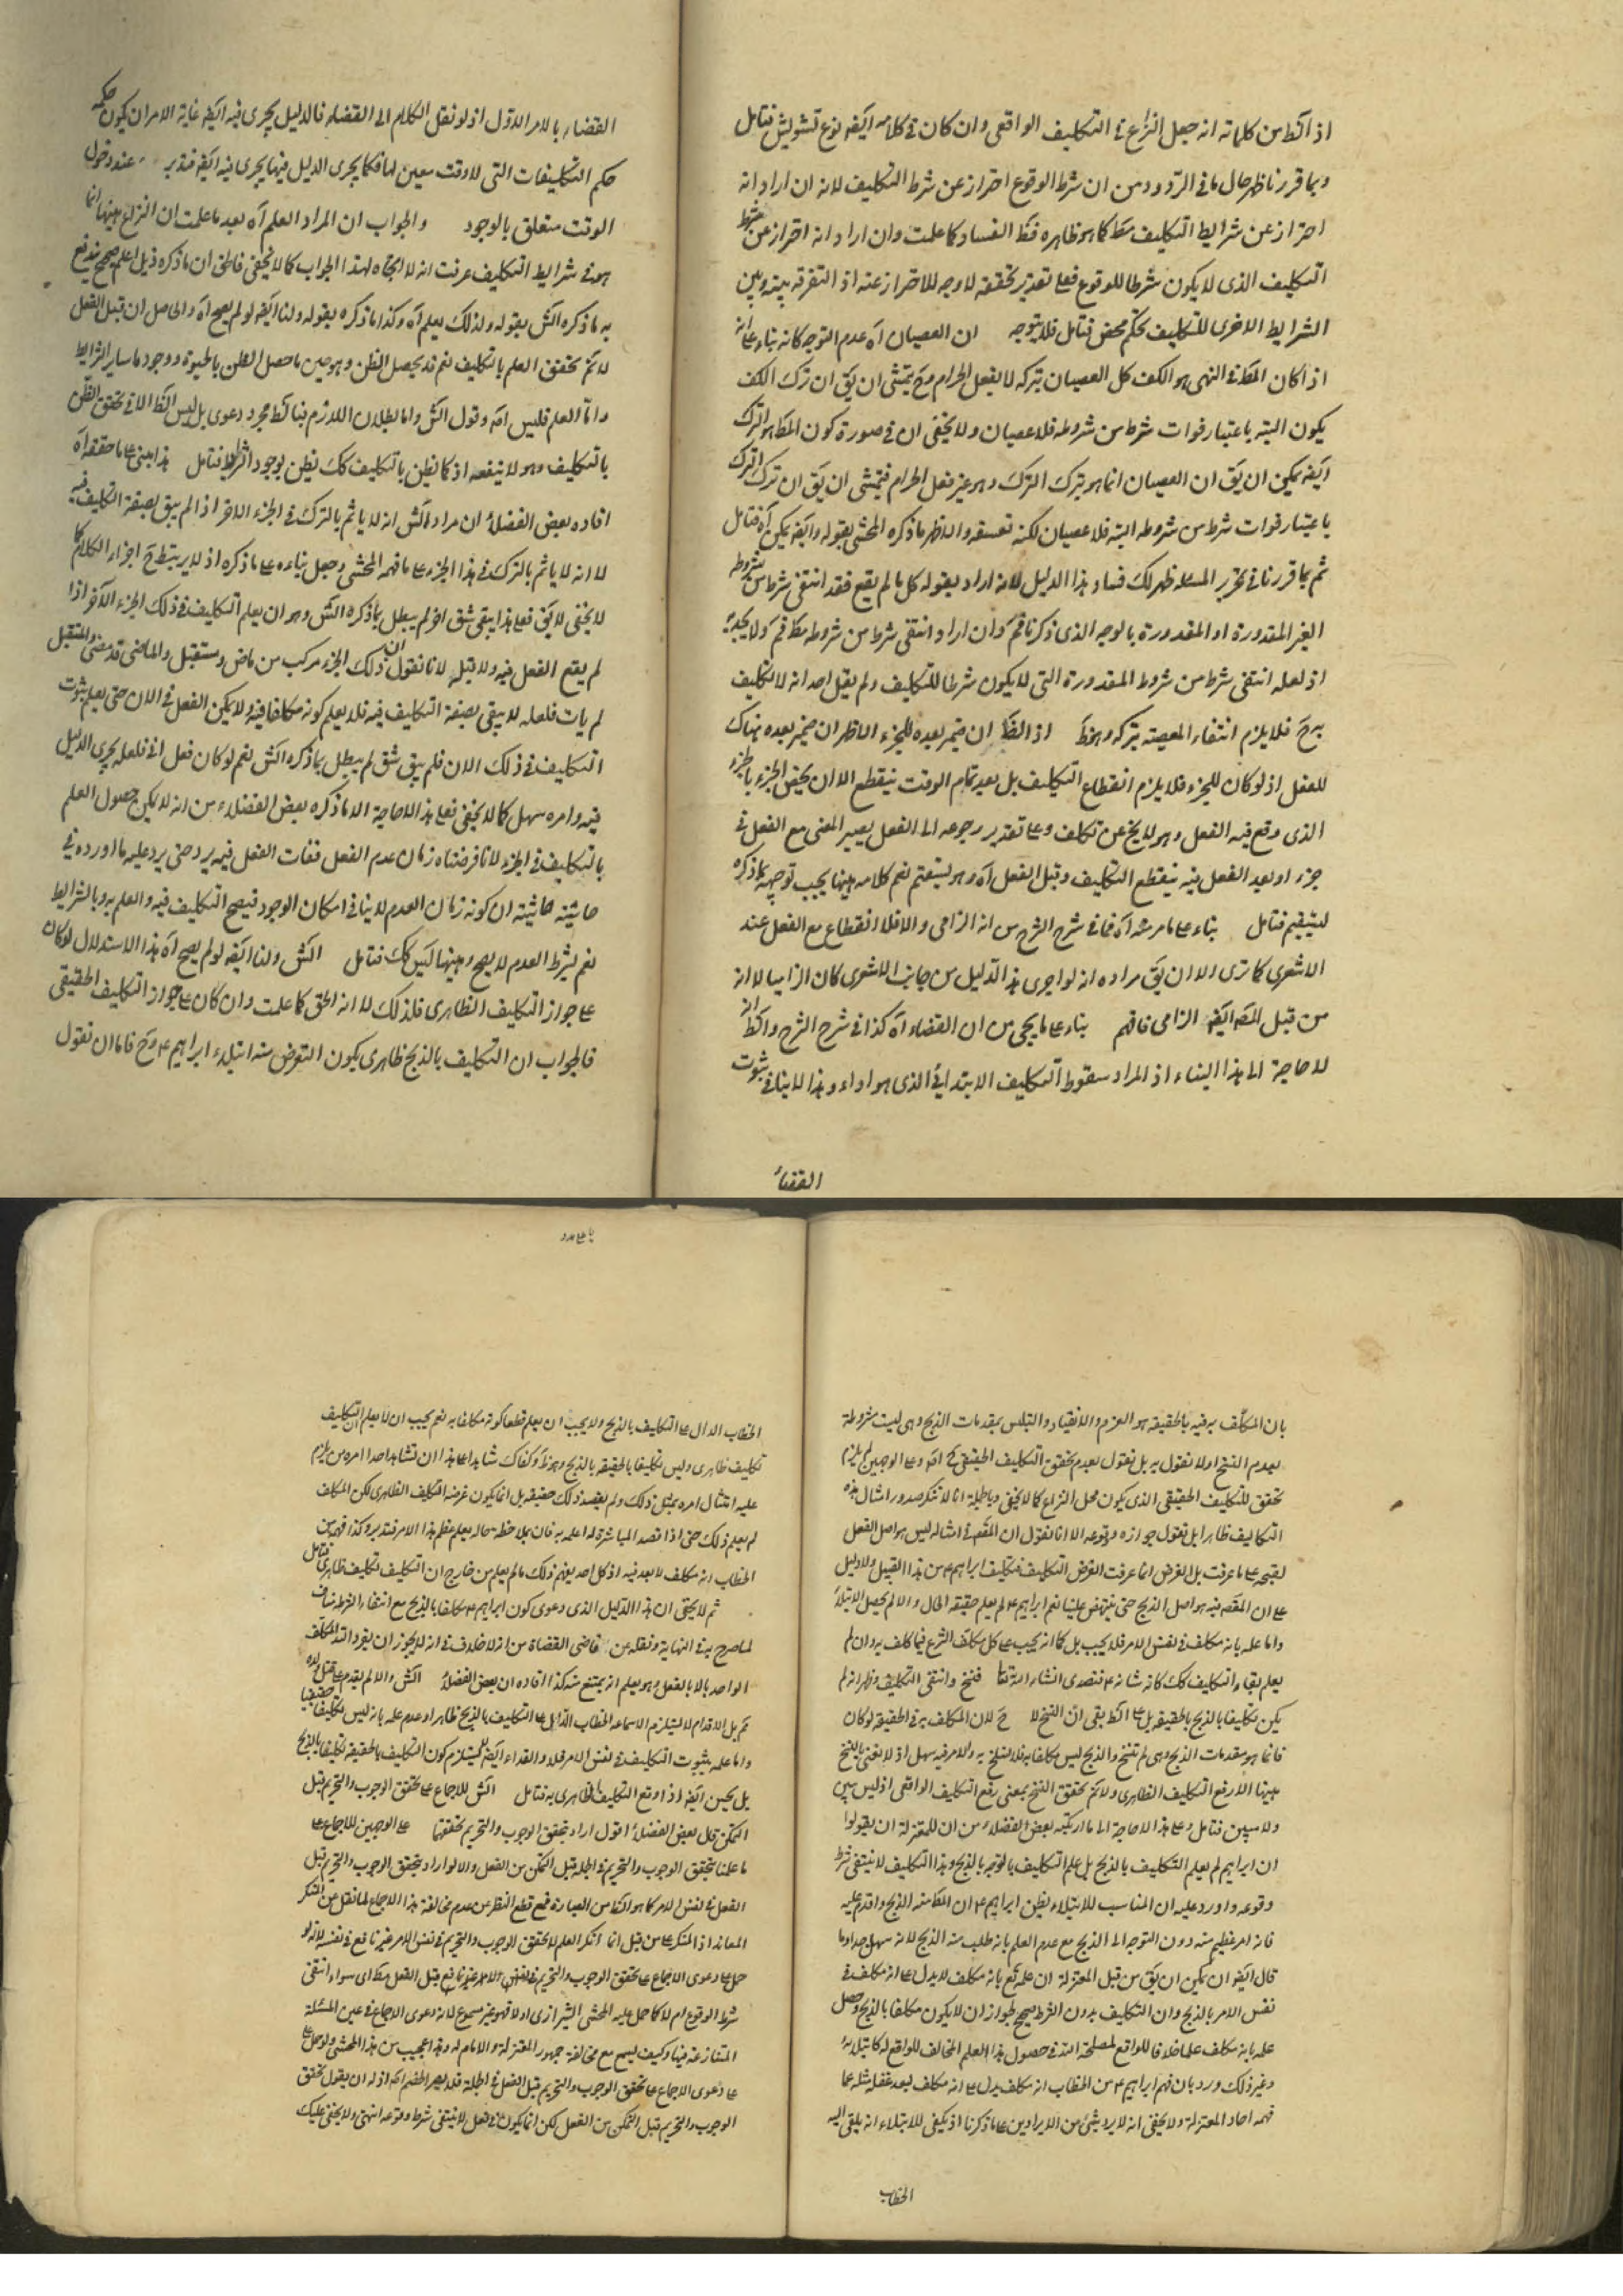 اذ الظ من كلماته انه جعل النزاع فى التكليف الواقعى وان كان فى كلامه ايضه نوع تشويش فتامل
وبما قررنا ظهر حال ما فى الردود من ان شرط الوقوع احتراز عن شرط التكليف لانه ان اراد انه
احتراز عن شرايط التكليف مط كما هو ظاهره فظ الفساد كما علمت وان اراد انه احتراز عن شرط
التكليف الذى لا يكون شرطا للوقوع فعلى تقدير تحققه لا وجه للاحتراز عنه اذ التفرقة بينه وبين
الشرايط الاخرى للتكليف تحكم محض فتامل فلا يتوجه ان العصيان آه عدم التوجه كانه بناء على انه
اذا كان المط فى النهى هو الكف كل العصيان بتركه لا بفعل الحرام وح يتمشى ان يق ان ترك الكف
يكون البته باعتبار فوات شرط من شروطه فلا عصيان ولا يخفى ان فى صورة كون المط هو الترك
ايضه يمكن ان يق ان العصيان انما هو بترك الترك وهو غير فعل الحرام فيتمشى ان يق ان ترك الترك
باعتبار فوات شرط من شروطه البته فلا عصيان لكنه تعسف والاظهر ما ذكره المحشى بقوله وايضه يمكن آه فتامل
ثم بما قررنا فى تحرير المسئله ظهر لك فساد هذا الدليل لانه اراد بقوله كل ما لم يقع فقد انتفى شرط من شروطه
الغير المقدورة او المقدورة بالوجه الذى ذكرنا فم وان اراد انتفى شرط من شروطه مط فم ولا يجديه
اذ لعله انتفى شرط من شروط المقدورة التى لا يكون شرطا للتكليف ولم يقل احد انه لا تكليف
به ح فلا يلزم انتفاء المعصية بتركه وهو ظ اذ الظ ان ضمير بعده للجزء الاظهر ان ضمير بعده نهناك
للفعل اذ لو كان للجزء فلا يلزم انقطاع التكليف بل بعد تمام الوقت ينقطع الا ان يخص الجزء بالجزء
الذى وقع فيه الفعل وهو لا يخ عن تكلف وعلى تقدير رجوعه الى الفعل يصير المعنى مع الفعل فى
جزء او بعد الفعل فيه ينقطع التكليف وقبل الفعل آه وهو يستقيم نعم كلامه هيهنا يجب توجيهه بما ذكره
ليستقيم فتامل بناء على ما مر منه آه فما فى شرح الشرح من انه الزامى والا فلا انقطاع مع الفعل عند
الاشعرى كما ترى الا ان يق مراده انه لو اجرى هذا الدليل من جانب الاشعرى كان الزاميا لا انه
من قبل المص ايضه الزامى فافهم بناء على ما يجى من ان القضاء آه كذا فى شرح الشرح والظ انه
لا حاجة الى هذا البناء اذ المراد سقوط التكليف الابتدائى الذى هو اداء وهذا لا ينافى ثبوت
القضاء
القضاء بالامر الاول اذ لو نقل الكلام الى القضاء فالدليل يجرى فيه ايضه غاية الامر ان يكون حكمه
حكم التكليفات التى لا وقت معين لها فكما يجرى الدليل فيها يجرى فيه ايضه فتدبر عند دخول
الوقت متعلق بالوجود والجواب ان المراد العلم آه بعد ما علمت ان النزاع هيهنا انما
هو فى شرايط التكليف عرفت انه لا اتجاه لهذا الجواب كما لا يخفى فاطن ان ما ذكره ذيل اعلم صحيح يندفع
به ما ذكره الش بقوله ولذلك يعلم آه وكذا ما ذكره بقوله ولنا ايضه لو لم يصح آه والحاصل ان قبل الفعل
لا ثم تحقق العلم بالتكليف نعم قد يحصل الظن وهو حين ما حصل الظن بالحيوة ووجود ما ساير الشرايط
واما العلم فليس اصه وقول الش واما بطلان اللازم فبالضا مجرد دعوى بل ليس الظ الا فى تحقق الظن
بالتكليف وهو لا ينفعه اذ كما نظن بالتكليف كك نظن بوجود الشرايط فتامل هذا مبنى على ما حققه آه
افاده بعض الفضلاء ان مراد الش انه لا ياثم بالترك فى الجزء الاخر اذا لم يبق بصفة التكليف فيه
لا انه لا ياثم بالترك فى هذا الجزء على ما فهمه المحشى وجعل بناءه على ما ذكره اذ لا يرتبط ح اجزاء الكلام كما
لا يخفى لا يق فعلى هذا يبقى شق اخر لم يبطل بما ذكره الش وهو ان يعلم التكليف فى ذلك الجزء الاخر اذا
لم يقع الفعل فيه ولا قبله لانا نقول ان ذلك الجزء مركب من ماض ومستقبل والماضى قد مضى والمستقبل
لم يات فلعله لا يبقى بصفة التكليف فيه فلا يعلم كونه مكلفا فيه ولا يمكن الفعل فى الان حتى يعلم ثبوت
التكليف فى ذلك الان فلم يبق شق لم يبطل بما ذكره الش نعم لو كان فعل انى فلعله يجرى الدليل
فيه وامره سهل كما لا يخفى فعلى هذا لا حاجة الا ما ذكره بعض الفضلاء من انه لا يمكن حصول العلم
بالتكليف فى الجزء لانا فرضناه زمان عدم الفعل ففات الفعل فيه يرد حتى يرد عليه ما اورده فى
حاشية حاشيته ان كونه زمان العدم لا ينافى امكان الوجود فيصح التكليف فيه والعلم به وبالشرايط
نعم بشرط العدم لا يصح وهيهنا ليس كك فتامل الش ولنا ايضه لو لم يصح آه هذا الاستدلال لو كان
على جواز التكليف الظاهرى فلذلك لا انه الحق كما علمت وان كان على جواز التكليف الحقيقى
فالجواب ان التكليف بالذبح ظاهرى يكون الغرض منه ابتلاء ابراهيم ع وح فاما ان نقول
بان المكلف به فيه بالحقيقه هو العزم والانقياد والتلبس بمقدمات الذبح وهى ليست شروطة
بعدم النسخ او لا نقول به بل نقول بعدم تحقق التكليف الحقيقى ح اصه وعلى الوجهين لم يلزم
تحقق للتكليف الحقيقى الذى يكون محل النزاع كما لا يخفى وبالجملة انا لا ننكر صدور امثال هذه
التكاليف ظاهرا بل نقول جوازه ووقوعه الا انا نقول ان المقص فى امثاله ليس هو اصل الفعل
لقبحه على ما عرفت بل الغرض انما عرفت الغرض التكليف فتكليف ابراهيم ع من هذا القبيل ولا دليل
على ان المقص فيه هو اصل الذبح حتى ينتهض علينا نعم ابراهيم ع لم يعلم حقيقه الحال والا لم يحصل الابتلاء
واما علمه بانه مكلف فى نفس الامر فلا يجب بل كما انه يجب على كل مكلف الشرع فيما كلف به وان لم
يعلم بقاء التكليف كك كانه شانه ع فتصدى انشاء الله تعا فنسخ وانتفى التكليف وظهر انه لم
يكن تكليفا بالذبح بالحقيقه بل على الظ بقى ان النسخ لا ح لان المكلف به فى الحقيقه لو كان
فانما هو مقدمات الذبح وهى لم تنسخ والذبح ليس مكلفا به فلا نسخ به والامر فيه سهل اذ لا نعنى بالنسخ
هيهنا الا رفع التكليف الظاهرى ولا ثم تحقق النسخ بمعنى رفع التكليف الواقعى اذ ليس ببين
ولا مبين فتامل وعلى هذا لا حاجة الى ما ارتكبه بعض الفضلاء من ان للمعتزلة ان يقولوا
ان ابراهيم لم يعلم التكليف بالذبح بل علم التكليف بالتوجه بالذبح وهذا التكليف لا ينتفى شرط
وقوعه واورد عليه ان المناسب للابتلاء بظن ابراهيم ع ان المط منه الذبح واقدم عليه
فانه امر عظيم منه دون التوجه الى الذبح مع عدم العلم بانه طلب منه الذبح لانه سهل جدا وما
قال ايضه ان يمكن ان يق من قبل المعتزلة ان علمه ع بانه مكلف لا يدل على انه مكلف فى
نفس الامر بالذبح وان التكليف بدون الشرط صحيح لجواز ان لا يكون مكلفا بالذبح وحصل
علمه بانه مكلف علما خلافا للواقع لمصلحة الله فى حصول هذا العلم المخالف للواقع له كابتلائه
وغير ذلك ورد بان فهم ابراهيم ع من الخطاب انه مكلف يدل على انه مكلف لبعد غفلة مثله عما
فهمه احاد المعتزلة ولا يخفى انه لا يرد شئ من الايرادين على ما ذكرنا اذ يكفى للابتلاء انه يلقى اليه
الخطاب
الخطاب الدال على التكليف بالذبح ولا يجب ان يعلم قطعا كونه مكلفا به نعم يجب ان لا يعلم ان التكليف
تكليف ظاهرى وليس تكليفا بالحقيقه بالذبح وهو ظ وكفاك شاهدا على هذا ان تشاهد احدا امره من يلزم
عليه امتثال امره بمثل ذلك ولم يقصد ذلك حقيقه بل انما يكون غرضه التكليف الظاهرى لكن المكلف
لم يعلم ذلك حتى اذا قصد المباشرة له اعلمه به فان بملاحظة حاله يعلم عظم هذا الامر فتدبر وكذا فهمه من
الخطاب انه مكلف لا بعد فيه اذ كل احد يفهم ذلك ما لم يعلم من خارج ان التكليف تكليف ظاهرى فتامل
ثم لا يخفى ان هذا الدليل الذى دعوى كون ابراهيم ع مكلفا بالذبح مع انتفاء الشرط مناف
لما صرح به فى النهاية ونقله عن قاضى القضاة من انه لا خلاف فى انه لا يجوز ان يفرد الله المكلف
الواحد بالا بالفعل وهو يعلم انه يمتنع منه كذا افاده ان بعض الفضلاء الش والا لم يقدم على قتل ولده
ثم بل الاقدام لا يستلزم الا سماعه الخطاب الدال على التكليف بالذبح ظاهرا وعدم علمه بانه ليس تكليفا حقيقيا
واما علمه بثبوت التكليف فى نفس الامر فلا والفداء ايضه لا يستلزم كون التكليف بالحقيقه تكليفا بالذبح
بل يحسن ايضه اذا وقع التكليف الظاهرى به فتامل الش للاجماع على تحقق الوجوب والتحريم قبل
التمكن قال بعض الفضلاء اقول اراد بتحقق الوجوب والتحريم تحققهما على الوجهين للاجماع على
ما علمنا بتحقق الوجوب والتحريم فى الجملة قبل التمكن من الفعل والا لو اراد بتحقق الوجوب والتحريم قبل
الفعل فى نفس الامر كما هو الظ من العبارة فمع قطع النظر عن عدم مخالفة هذا الاجماع لما نقل عن المنكر
المعاند اذ المنكر على من قبل انما انكر العلم لا تحقق الوجوب والتحريم فى نفس الامر غير نافع فى نفسه لانه لو
حمل على دعوى الاجماع على تحقق الوجوب والتحريم فى نفس الامر غير نافع قبل الفعل مط اى سواء انتفى
شرط الوقوع ام لا كما حمل عليه المحشى الشيرازى اولا فهو غير مسموع لانه دعوى الاجماع فى عين المسئلة
المتنازعة فيها وكيف يسمع مع مخالفة جمهور المعتزلة والامام له وهذا عجيب من هذا المحشى ولو حمل على
على دعوى الاجماع على تحقق الوجوب والتحريم قبل الفعل فى الجملة فلا يضر الخصم اصه اذ له ان يقول تحقق
الوجوب والتحريم قبل التمكن من الفعل لكن انما يكون فى فعل لا ينتفى شرط وقوعه انتهى ولا يخفى عليك